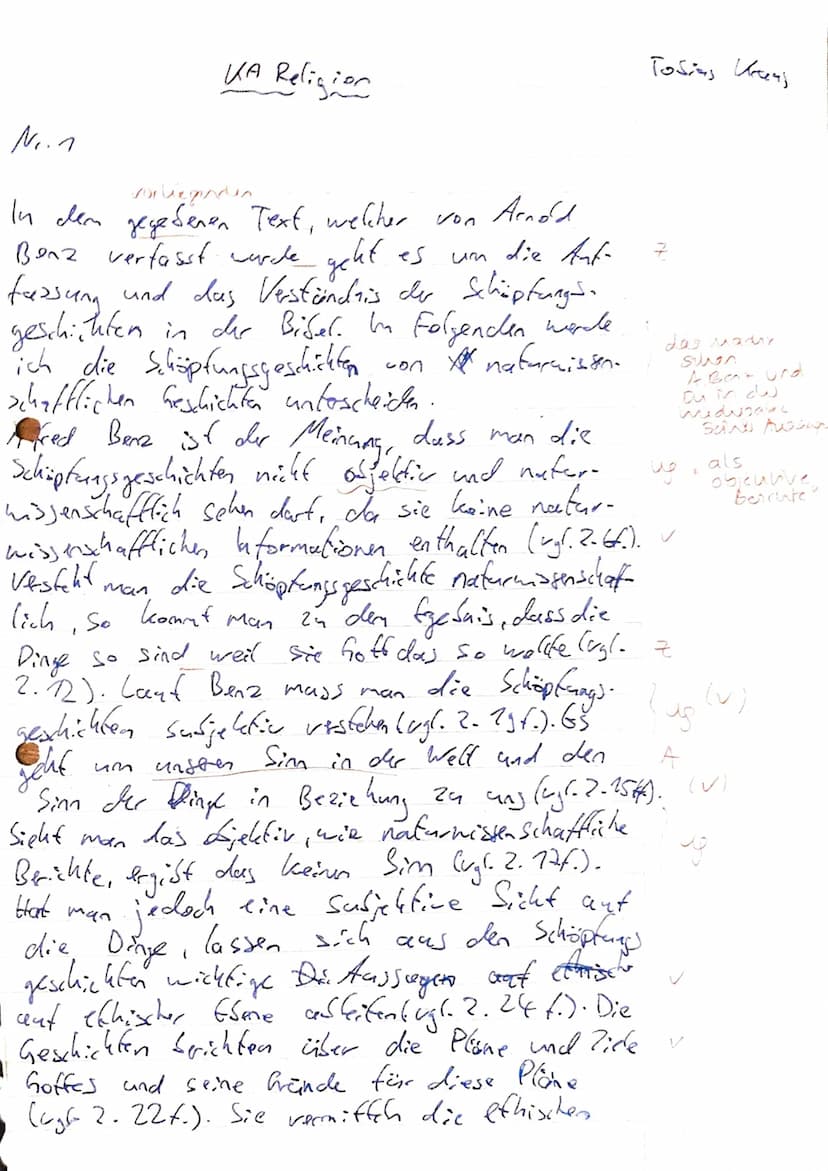 KA Religion
Tobias
Nr. 1
vorliegenden
In dem gegebenen Text, welcher von Arnold
Benz verfasst wurde geht es um die Auf-
Z
fassung und das Verständnis der Schöpfungs-
geschichten in der Bibel. Im Folgenden werde
ich die Schöpfungsgeschichten von naturwissen-
schafflichen Geschichten unterscheiden.
das
schon
A Benz und
Du in der
Wiedergabe
Seiner
Alfred Benz ist der Meinung, dass man die
Schöpfungsgeschichten nicht objektiv und natur-
ug, als
objektive
Berichte
wissenschafflich sehen darf, da sie keine natur-
wissenschafflichen Informationen enthalten (vgl. Z. 6f.).
Versteht man die Schöpfungsgeschichte naturwissenschaf-
lich, so kommt man zu dem Ergebnis, dass die
Dinge so sind weil sie Gott das so wollte (vgl.
Z
Z. 12). Laut Benz muss man die Schöpfungs-
geschichten subjektiv verstehen (vgl. Z. 19f.). Es
ug (√)
geht um unseren Sinn in der Welt und den
A
Sinn der Dinge in Beziehung zu uns (vgl. Z. 15ff).
(√)
Sieht man das objektiv, wie naturwissenschaffliche
ug
Berichte, ergibt das keinen Sinn (vgl. Z. 17f.).
Hat man jedoch eine subjektive Sicht auf
die Dinge, lassen sich aus den Schöpfungs
geschichten wichtige Aussagen auf ethische
√
auf ethischer Ebene ableiten (vgl. Z. 24 f.). Die
Geschichten berichten über die Pläne und Ziele
√
Gottes und seine Gründe für diese Pläne
(vgl. Z. 22f.). Sie vermitteln die ethischen